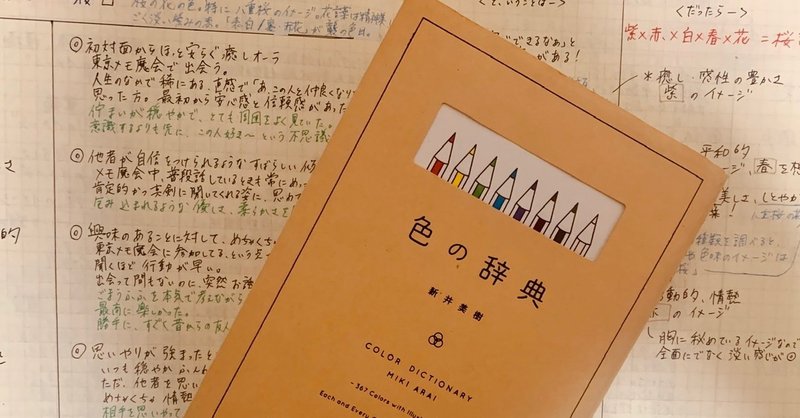 桜の花の色。特に、八重桜のイメージ。花言葉は精神美
ごく淡い紫みの赤。
◎初対面からほっと安らぐ癒しオーラ
東京メモ魔会で出会う。
人生のなかで稀にある、直感で「あ、この人と仲良くなり
思った方。最初から安心感と信頼感があった
佇まいが穏やかで、とても周囲をよく見ていた。
意識するよりも先に、この人好き〜という不思議
◎他者が自信をつけられるようなすばらしい
メモ魔会中、普段話しているときも常に
肯定的かつ真剣に聞いてくれる姿に、思わ
包み込まれるような優しさ、柔らかさを
◎興味のあることに対して、めちゃくちゃ
東京メモ魔会に参加してる、という
聞くほど行動が早い。
出会って間もないのに、突然お
ごまうふふを本気で考えながら
最高に楽しかった。
勝手に、すぐ昔からの友人
◎思いやりが強まったと
いつも穏やか
ただ、他者を思い
めちゃくちゃ情熱
相手を思いやって
できるなぁ」と
がある!
<だったらー>
紫×赤、×白×春×花 =桜
*癒し・感性の豊かさ
紫のイメージ
平和的
春を想
美しさ、しとやか
を調べると、
や色味のイメージは
動的、情熱
のイメージ
胸に秘めているイメージなので
全面にでなく淡い感じが◎
色の辞典
新井美樹
COLOR DICTIONARY
MIKI ARAI
- 367 Colors with
Each and Every